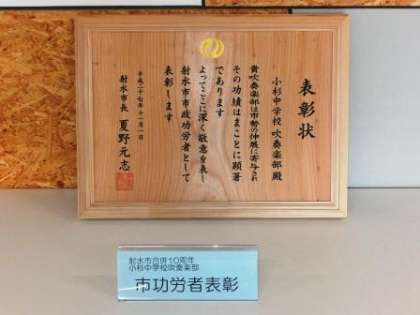 表彰状
小杉中学校 吹奏楽部 殿
貴吹奏楽部は市勢の伸展に寄与され
その功績はまことに顕著
であります
よってここに深く敬意を表し
射水市市政功労者として
表彰します
平成二十七年十一月一日
射水市長 夏野元志
射水市合併10周年
小杉中学校吹奏楽部
市功労者表彰